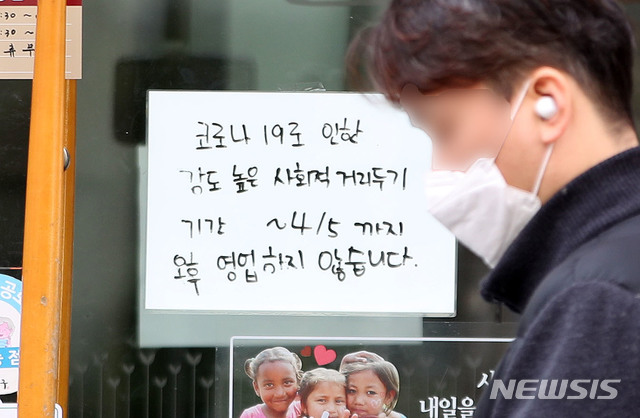 :30 ~
:30 ~
휴 무
코로나 19로 인한
강도 높은 사회적 거리두기
기간 ~4/5 까지
오후 영업하지 않습니다.
내일을
NEWSIS